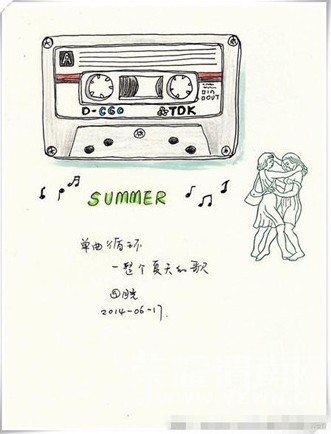 A
IN
OUT
D-C60 TDK
SUMMER
单曲循环
一整个夏天的歌
2014-06-17.